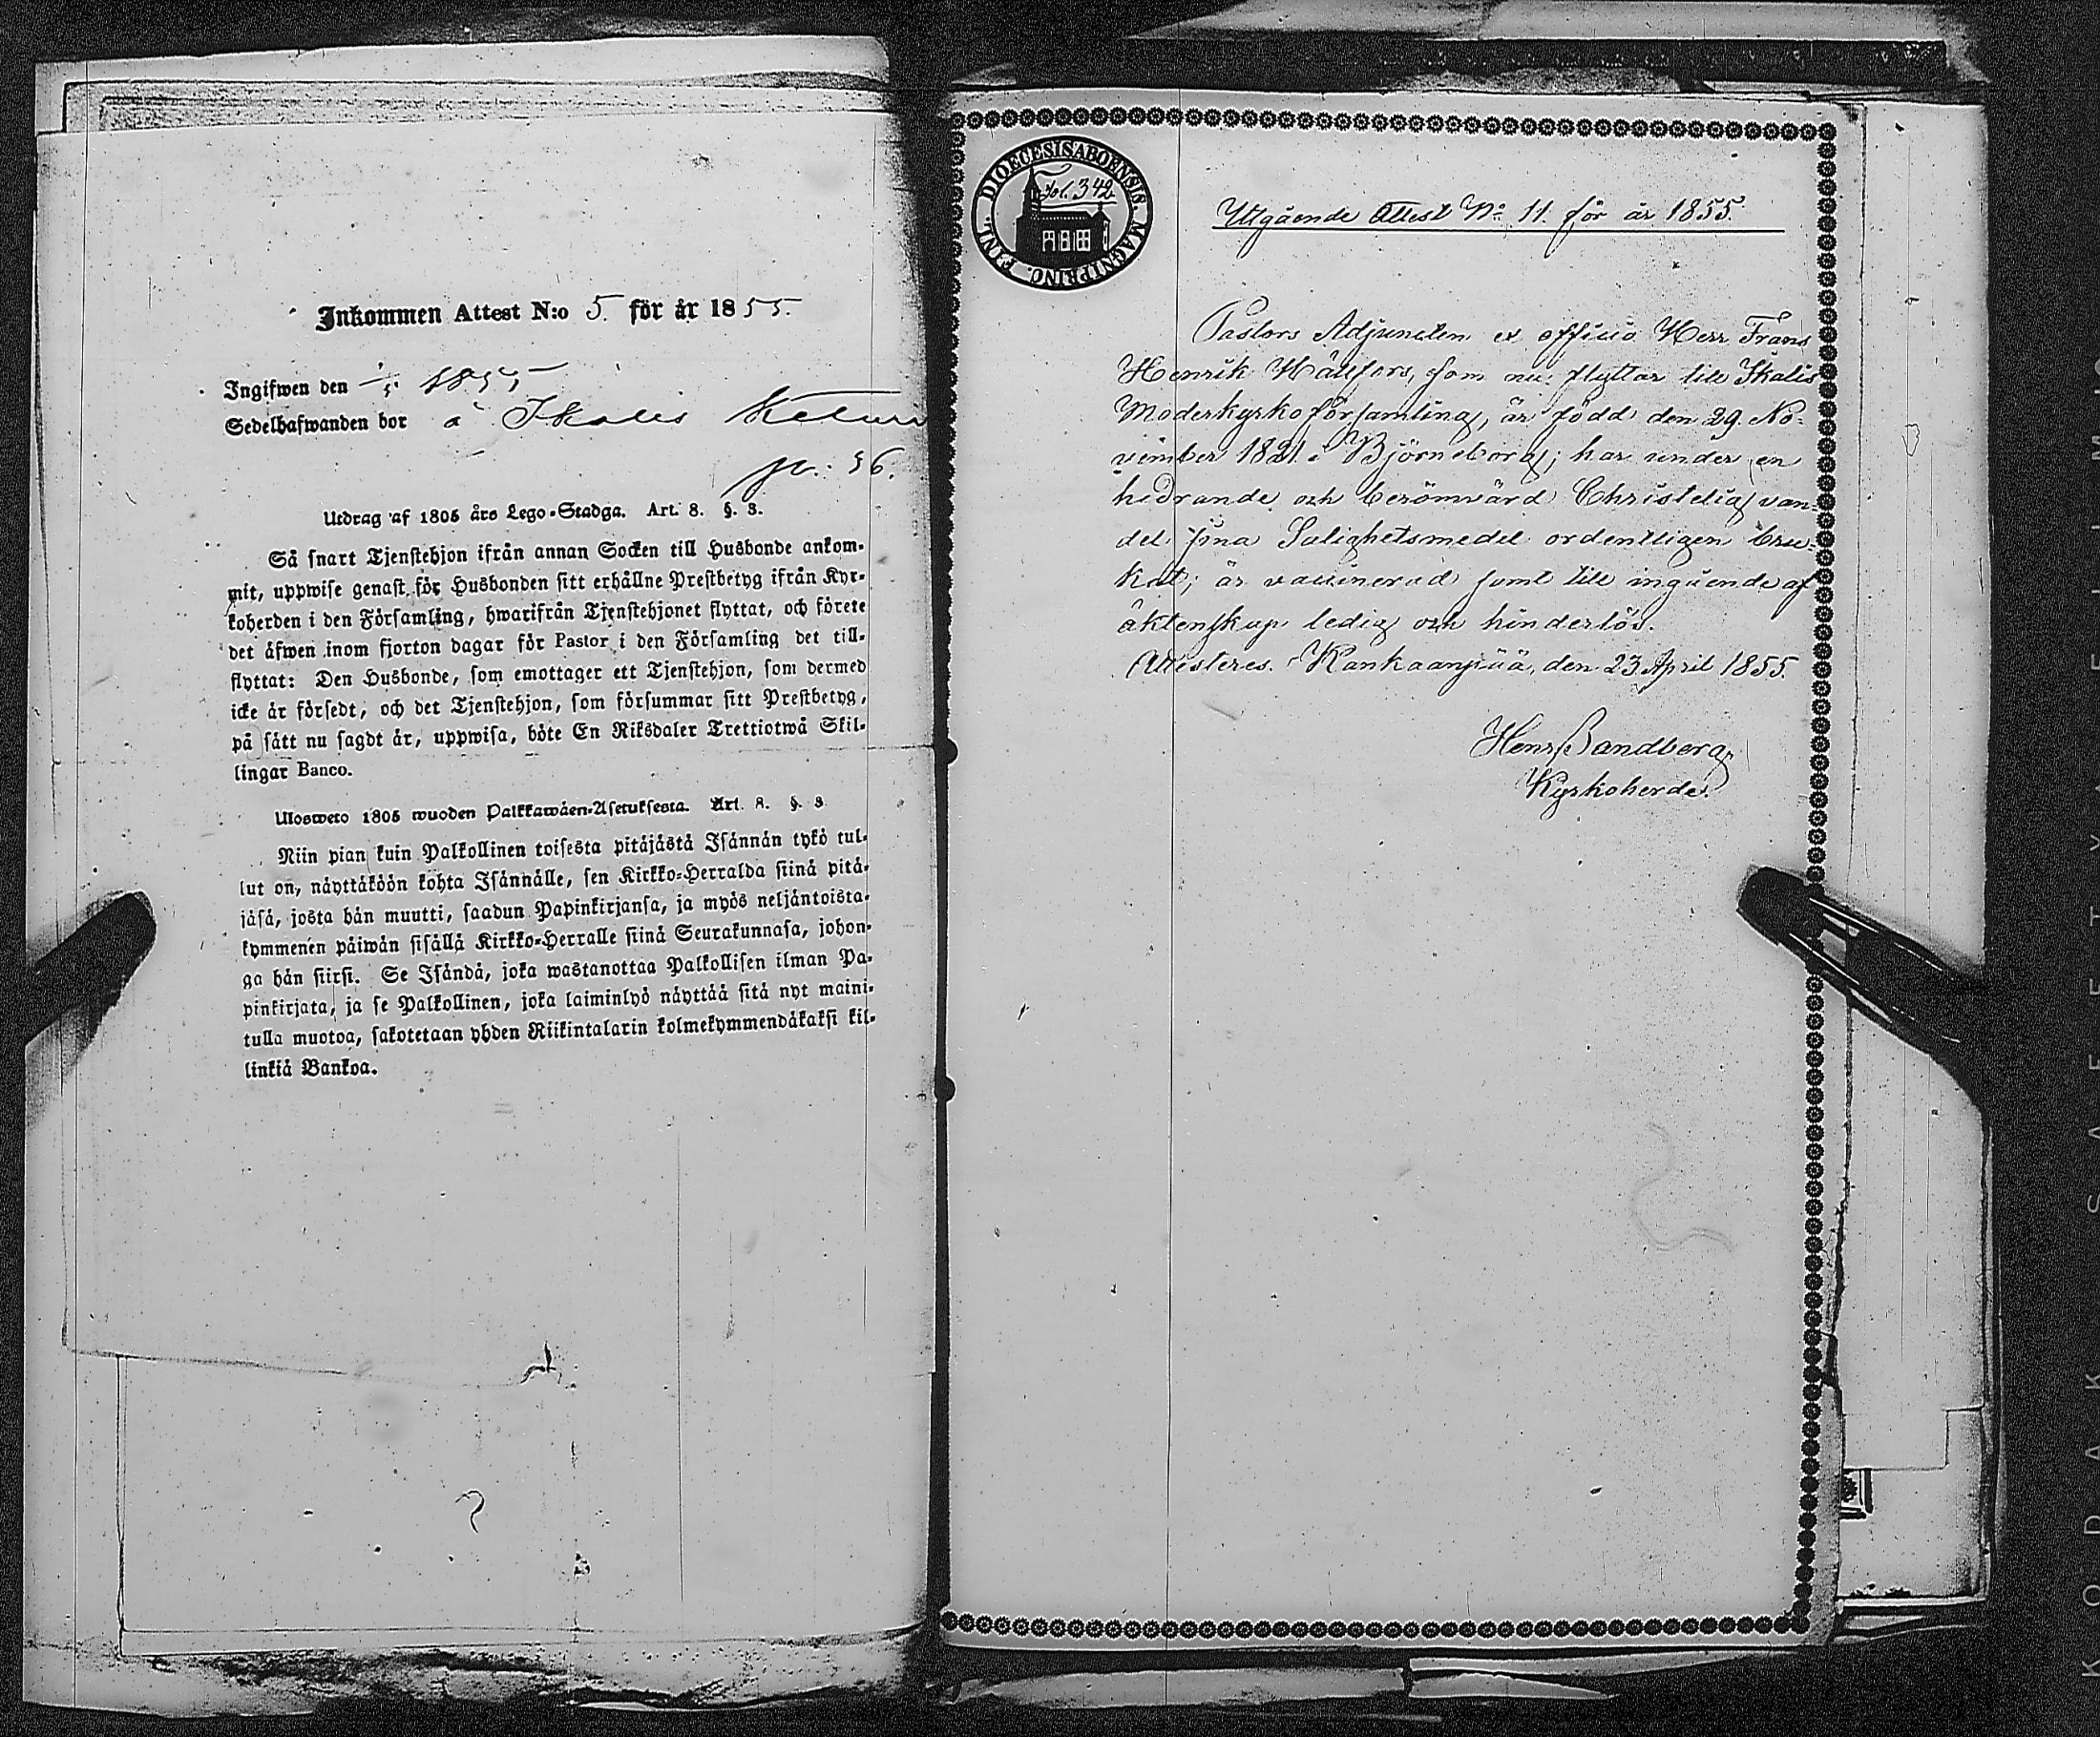 Inkommen Attest N:o 5. för år 1855.
Ingifwen den 1/5. 1855
Sedelhafwanden bor å Ikalis
pg.: 36.
Utdrag af 1805 års Lego-Stadga. Art. 8. §. 8.
Så snart Tjenstehjon ifrån annan Socken till Husbonde ankom-
mit, uppwise genast för Husbonden sitt erhållne Prestbetyg ifrån Kyr-
koherden i den Församling, hwarifrån Tjenstehjonet flyttat, och förete
det äfwen inom fjorton dagar för Pastor i den Församling det till-
flyttat: Den Husbonde, som emottager ett Tjenstehjon, som dermed
icke är försedt, och det Tjenstehjon, som försummar sitt Prestbetyg,
på sätt nu sagdt är, uppwisa, böte En Riksdaler Trettiotwå Skil-
lingar Banco.
Ulosweto 1805 wuoden Palkkawäen-Asetuksesta. Art. 8. §. 8
Niin pian kuin Palkollinen toisesta pitäjästä Isännän tykö tul-
lut on, näyttäköön kohta Isännälle, sen Kirkko-Herralda siinä pitä-
jäsä, josta hän muutti, saadun Papinkirjansa, ja myös neljäntoista-
kymmenen päiwän sisällä Kirkko-Herralle siinä Seurakunnasa, johon-
ga hän siirsi. Se Isändä, joka wastanottaa Palkollisen ilman Pa-
pinkirjata, ja se Palkollinen, joka laiminlyö näyttää sitä nyt maini-
tulla muotoa, sakotetaan yhden Riikintalarin kolmekymmendäkaksi kil-
linkiä Bankoa.
DIOECESIS ABOENSIS. MAGNI PRINC. FINL.
fol. 342.
Utgående Attest No 11. för år 1855.
Pastors Adjuncten ex officio Herr Frans
Henrik Hällfors, som nu flyttar till Ikalis
Moderkyrkoförsamling, är född den 29. No-
vember 1821. i Björneborg; har under en
hedrande och berömvärd Christelig van-
del sina Salighetsmedel ordentligen bru-
kat; är vaccinerad samt till ingående af
äktenskap ledig och hinderlös.
Attesteres. Kankaanpää, den 23 April 1855.
Henr Sandberg
Kyrkoherde.
KODAK SAFETY FILM